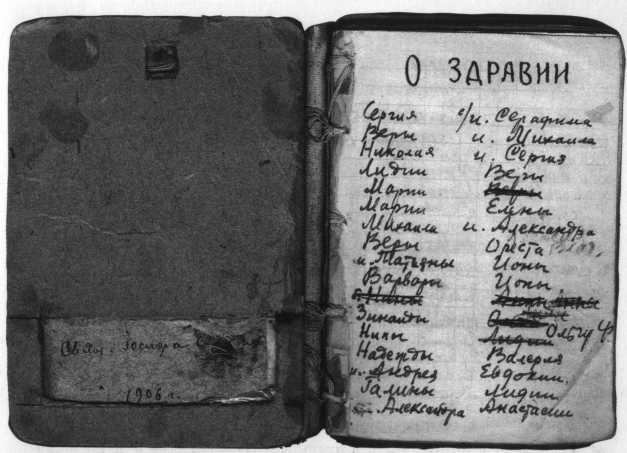 1906 г.
О ЗДРАВИИ
Сергия
Веры
Николая
Лидии
Марии
Марии
Михаила
Веры
и. Татианы
Варвары
Нины
Зинаиды
Нины
Надежды
и. Андрея
Галины
Александра
с/и. Серафима
и. Михаила
и. Сергия
Веры
Веры
Елены
и. Александра
Ореста
Ионы
Ионы
Ольгу Ф.
Лидии
Валерия
Евдокии.
Лидии
Анастасии